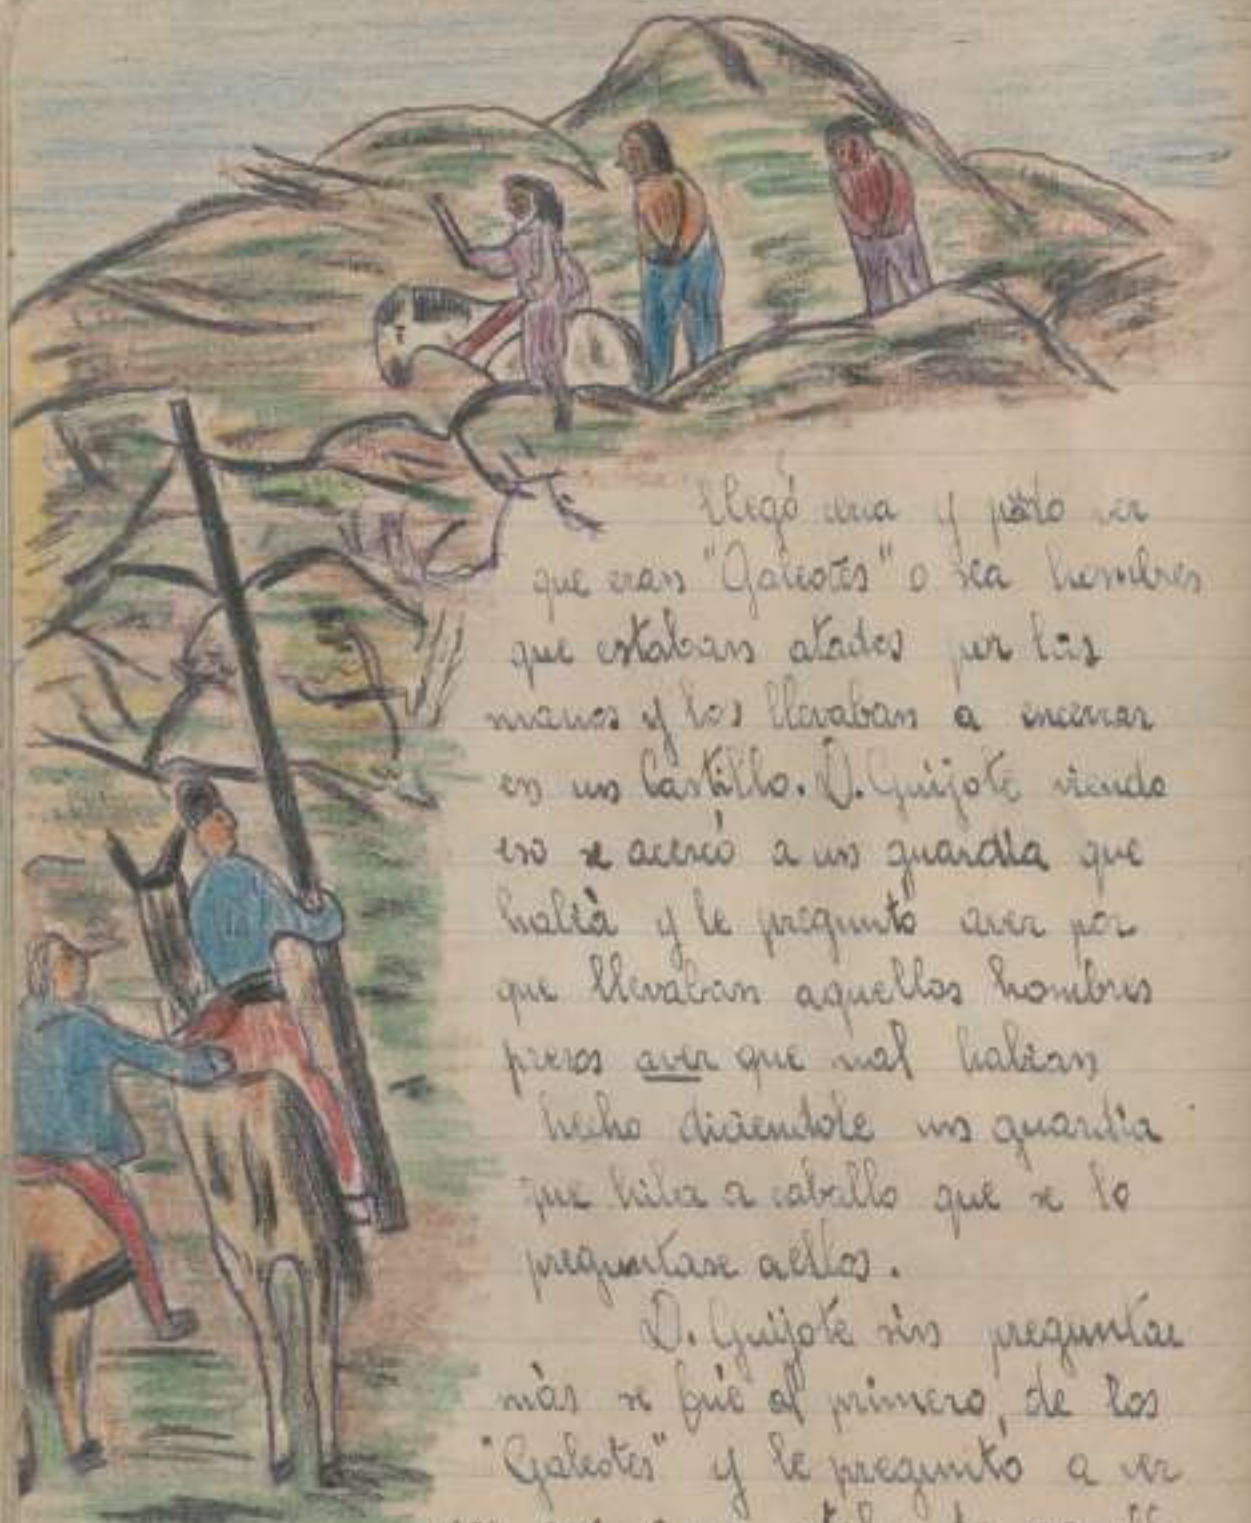 llegó cerca y pudo ver
que eran "Galeotes" o sea hombres
que estaban atados por las
manos y los llevaban a encerrar
en un Castillo. D. Quijote viendo
eso se acercó a un guardia que
había y le preguntó aver por
que llevaban aquellos hombres
presos aver que mal habian
hecho diciendole un guardia
que había a caballo que se lo
preguntase aellos.
D. Quijote sin preguntar
más se fué al primero, de los
"Galeotes" y le preguntó a ver